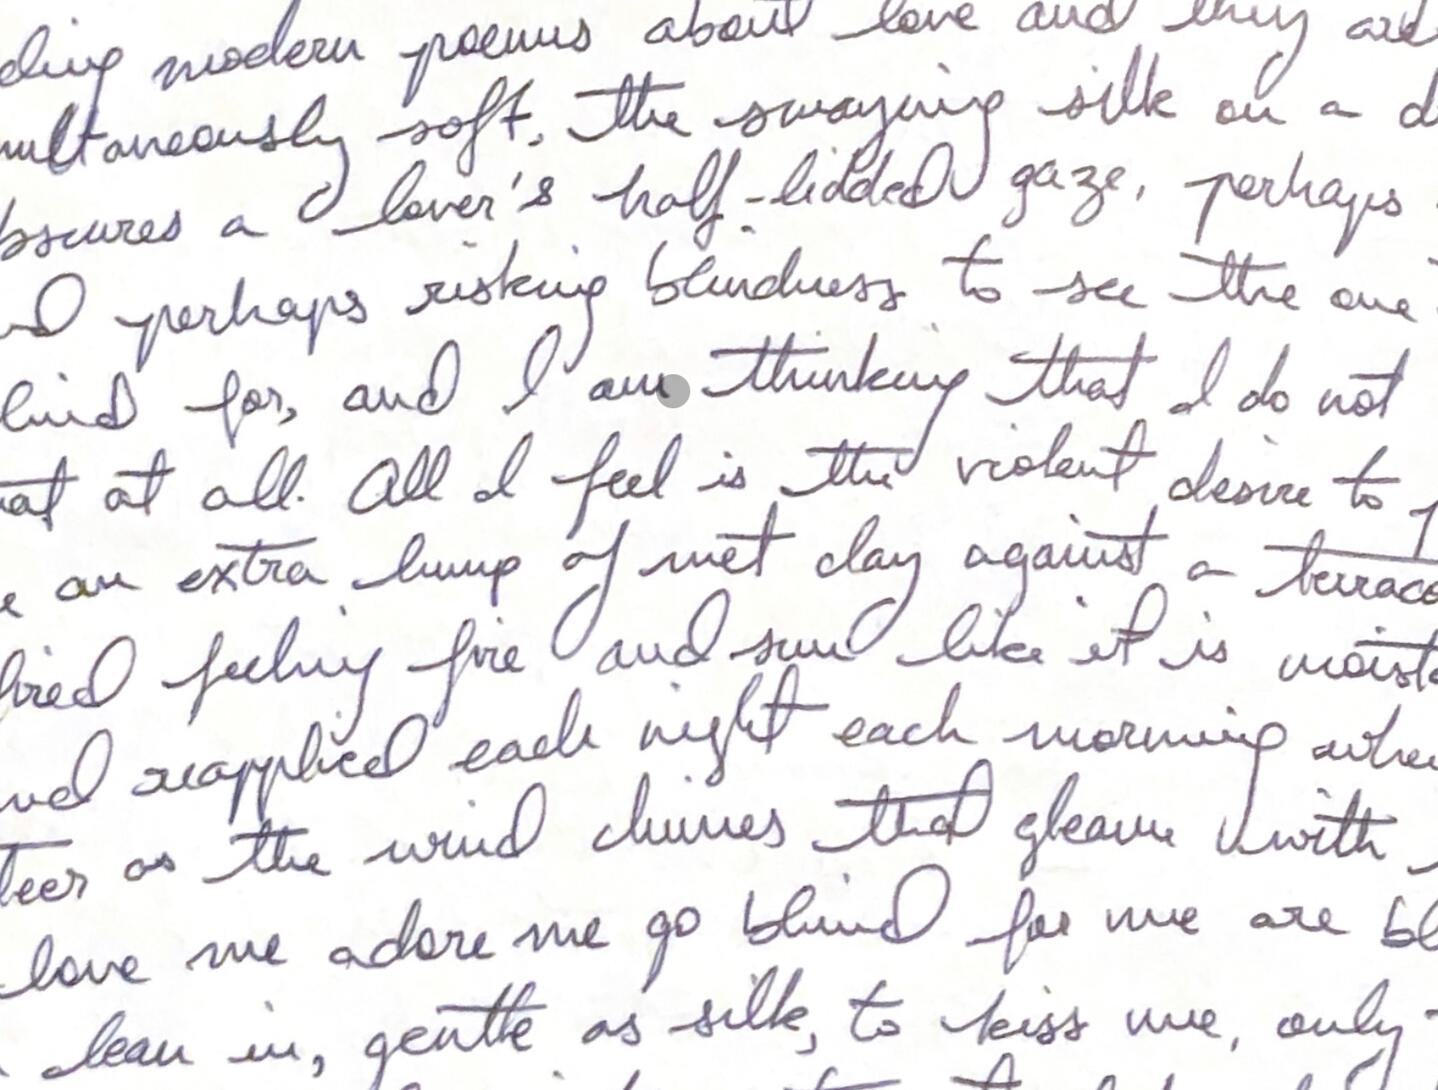 ding modern poems about love and they are
multaneously soft. The swaying silk on a d
bscures a lover's half-lidded gaze, perhaps
nd perhaps risking blindness to see the one
lind for, and I am thinking that I do not
at at all. All I feel is the violent desire to p
e an extra lump of wet clay against a terraco
fired feeling fire and sun like it is moist
nd reapplied each night each morning when
teer as the wind chimes that gleam with
love me adore me go blind for me are bl
lean in, gentle as silk, to kiss me, only